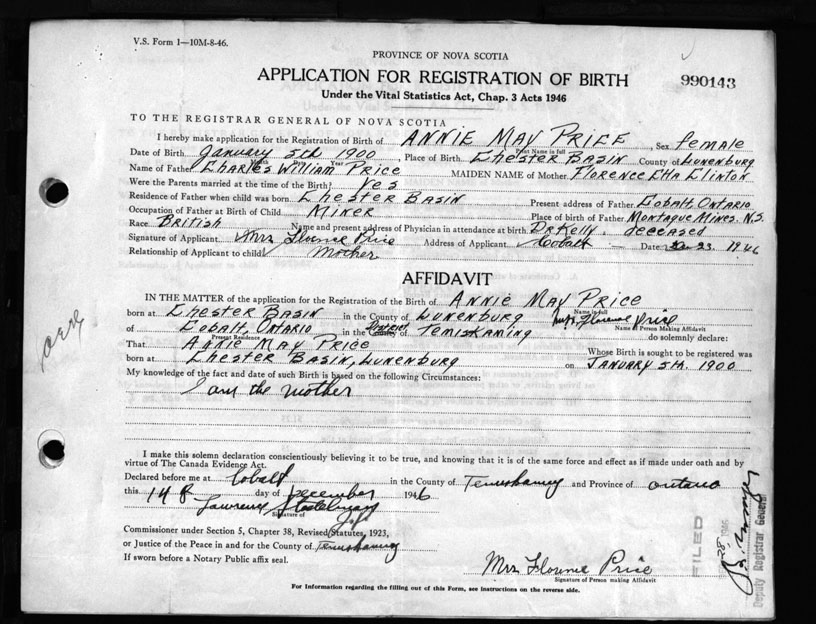 V.S. Form 1—10M-8-46.
PROVINCE OF NOVA SCOTIA
APPLICATION FOR REGISTRATION OF BIRTH 990143
Under the Vital Statistics Act, Chap. 3 Acts 1946
TO THE REGISTRAR GENERAL OF NOVA SCOTIA
I hereby make application for Registration of Birth of ANNIE MAY PRICE Sex female
Print Name in full
Date of Birth January 5th 1900, Place of Birth CHESTER BASIN County of LUNENBURG
Month Day Year
Name of Father CHARLES WILLIAM PRICE MAIDEN NAME of Mother FLORENCE ETTA CLINTON
Were the Parents married at the time of the Birth? Yes
Residence of Father when child was born CHESTER BASIN Present address of Father COBALT, ONTARIO
Occupation of Father at Birth of Child MINER Place of birth of Father MONTAGUE MINES. N.S.
Race BRITISH Name and present address of Physician in attendance at birth DR KELLY. deceased
Signature of Applicant Mrs Florence Price Address of Applicant Cobalt — Date 23. 1946
Relationship of Applicant to child Mother
AFFIDAVIT
IN THE MATTER of the application for the Registration of the Birth of ANNIE MAY PRICE
Name in full
born at CHESTER BASIN in the County of LUNENBURG Mrs. Florence Price
Name of Person Making Affidavit
of COBALT, ONTARIO in the District County of TEMISKAMING do solemnly declare:
Present Residence
That ANNIE MAY PRICE Whose Birth is sought to be registered was
born at CHESTER BASIN, LUNENBURG on JANUARY 5th. 1900
My knowledge of the fact and date of such Birth is based on the following Circumstances:
I am the mother
I make this solemn declaration conscientiously believing it to be true, and knowing that it is of the same force and effect as if made under oath and by
virtue of The Canada Evidence Act.
Declared before me at Cobalt in the County of Temiskaming and Province of Ontario
this 14 day of December 1946
Signature of
Commissioner under Section 5, Chapter 38, Revised Statutes, 1923,
or Justice of the Peace in and for the County of Temiskaming
If sworn before a Notary Public affix seal.
Mrs Florence Price
Signature of Person making Affidavit
For Information regarding the filling out of this Form, see instructions on the reverse side.
FILED
Deputy Registrar General